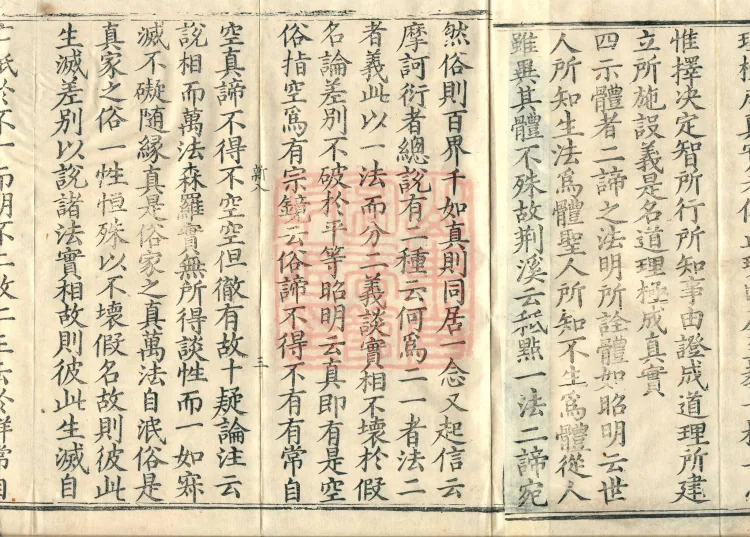 惟擇决定智所行所知事由證成道理所建
立所施設義是名道理極成真實
四示體者二諦之法明所詮體如昭明云世
人所知生法爲體聖人所知不生爲體從人
雖異其體不殊故荆溪云秖點一法二諦宛
然俗則百界千如真則同居一念又起信云
摩訶衍者總說有二種云何爲二一者法二
者義此以一法而分二義談實相不壞於假
名論差別不破於平等昭明云真即有是空
俗指空爲有宗鏡云俗諦不得不有有常自
新入
三
空真諦不得不空空但徹有故十疑論注云
說相而萬法森羅實無所得談性而一如寂
滅不礙隨緣真是俗家之真萬法自泯俗是
真家之俗一性恒殊以不壞假名故則彼此
生滅差別以說諸法實相故則彼此生滅自